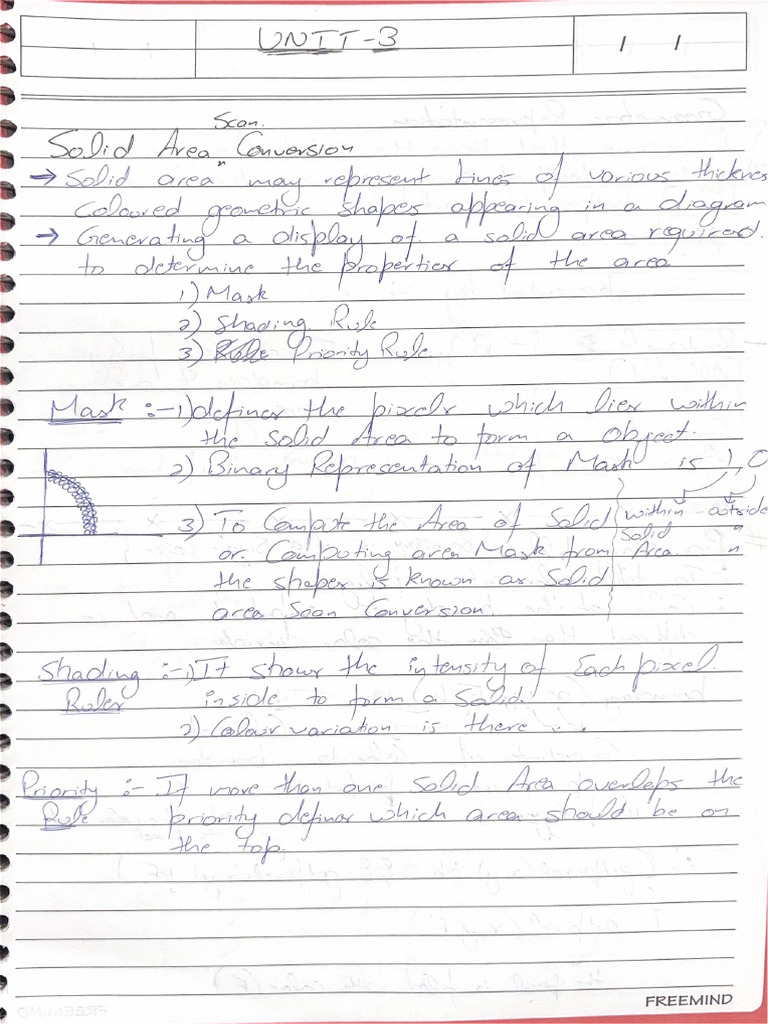 UNIT-3
/ /
Scan.
Solid Area ^ Conversion
→ Solid area may represent Lines of various thicknes
Coloured geometric shapes appearing in a diagram
→ Generating a display of a solid area required.
to determine the properties of the area
1) Mask
2) Shading Rule
3) Priority Rule
Mask :- 1) defines the pixels which lies within
the Solid Area to form a Object.
2) Binary Representation of Mask is 1, 0
3) To Compute the Area of Solid
or Computing area Mask from
the shapes is known as Solid
area Scan Conversion.
within outside
Solid "
Area "
Shading :- 1) It shows the intensity of Each pixel
Rules inside to form a Solid.
2) Colour variation is there
Priority :- If more than one Solid Area overlaps the
Rule priority defines which area should be on
the top.
FREEMIND